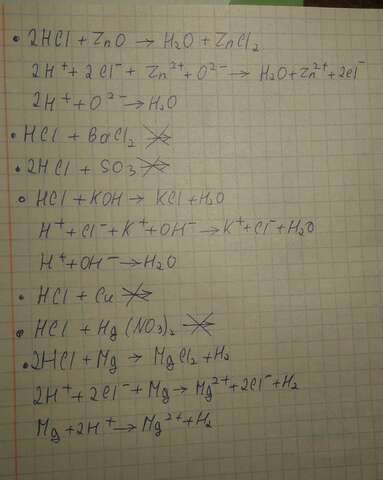 • 2HCl + ZnO → H₂O + ZnCl₂
2H⁺ + 2Cl⁻ + Zn²⁺ + O²⁻ → H₂O + Zn²⁺ + 2Cl⁻
2H⁺ + O²⁻ → H₂O
• HCl + BaCl₂ ↛
• 2HCl + SO₃ ↛
• HCl + KOH → KCl + H₂O
H⁺ + Cl⁻ + K⁺ + OH⁻ → K⁺ + Cl⁻ + H₂O
H⁺ + OH⁻ → H₂O
• HCl + Cu ↛
• HCl + Hg(NO₃)₂ ↛
• 2HCl + Mg → MgCl₂ + H₂
2H⁺ + 2Cl⁻ + Mg → Mg²⁺ + 2Cl⁻ + H₂
Mg + 2H⁺ → Mg²⁺ + H₂